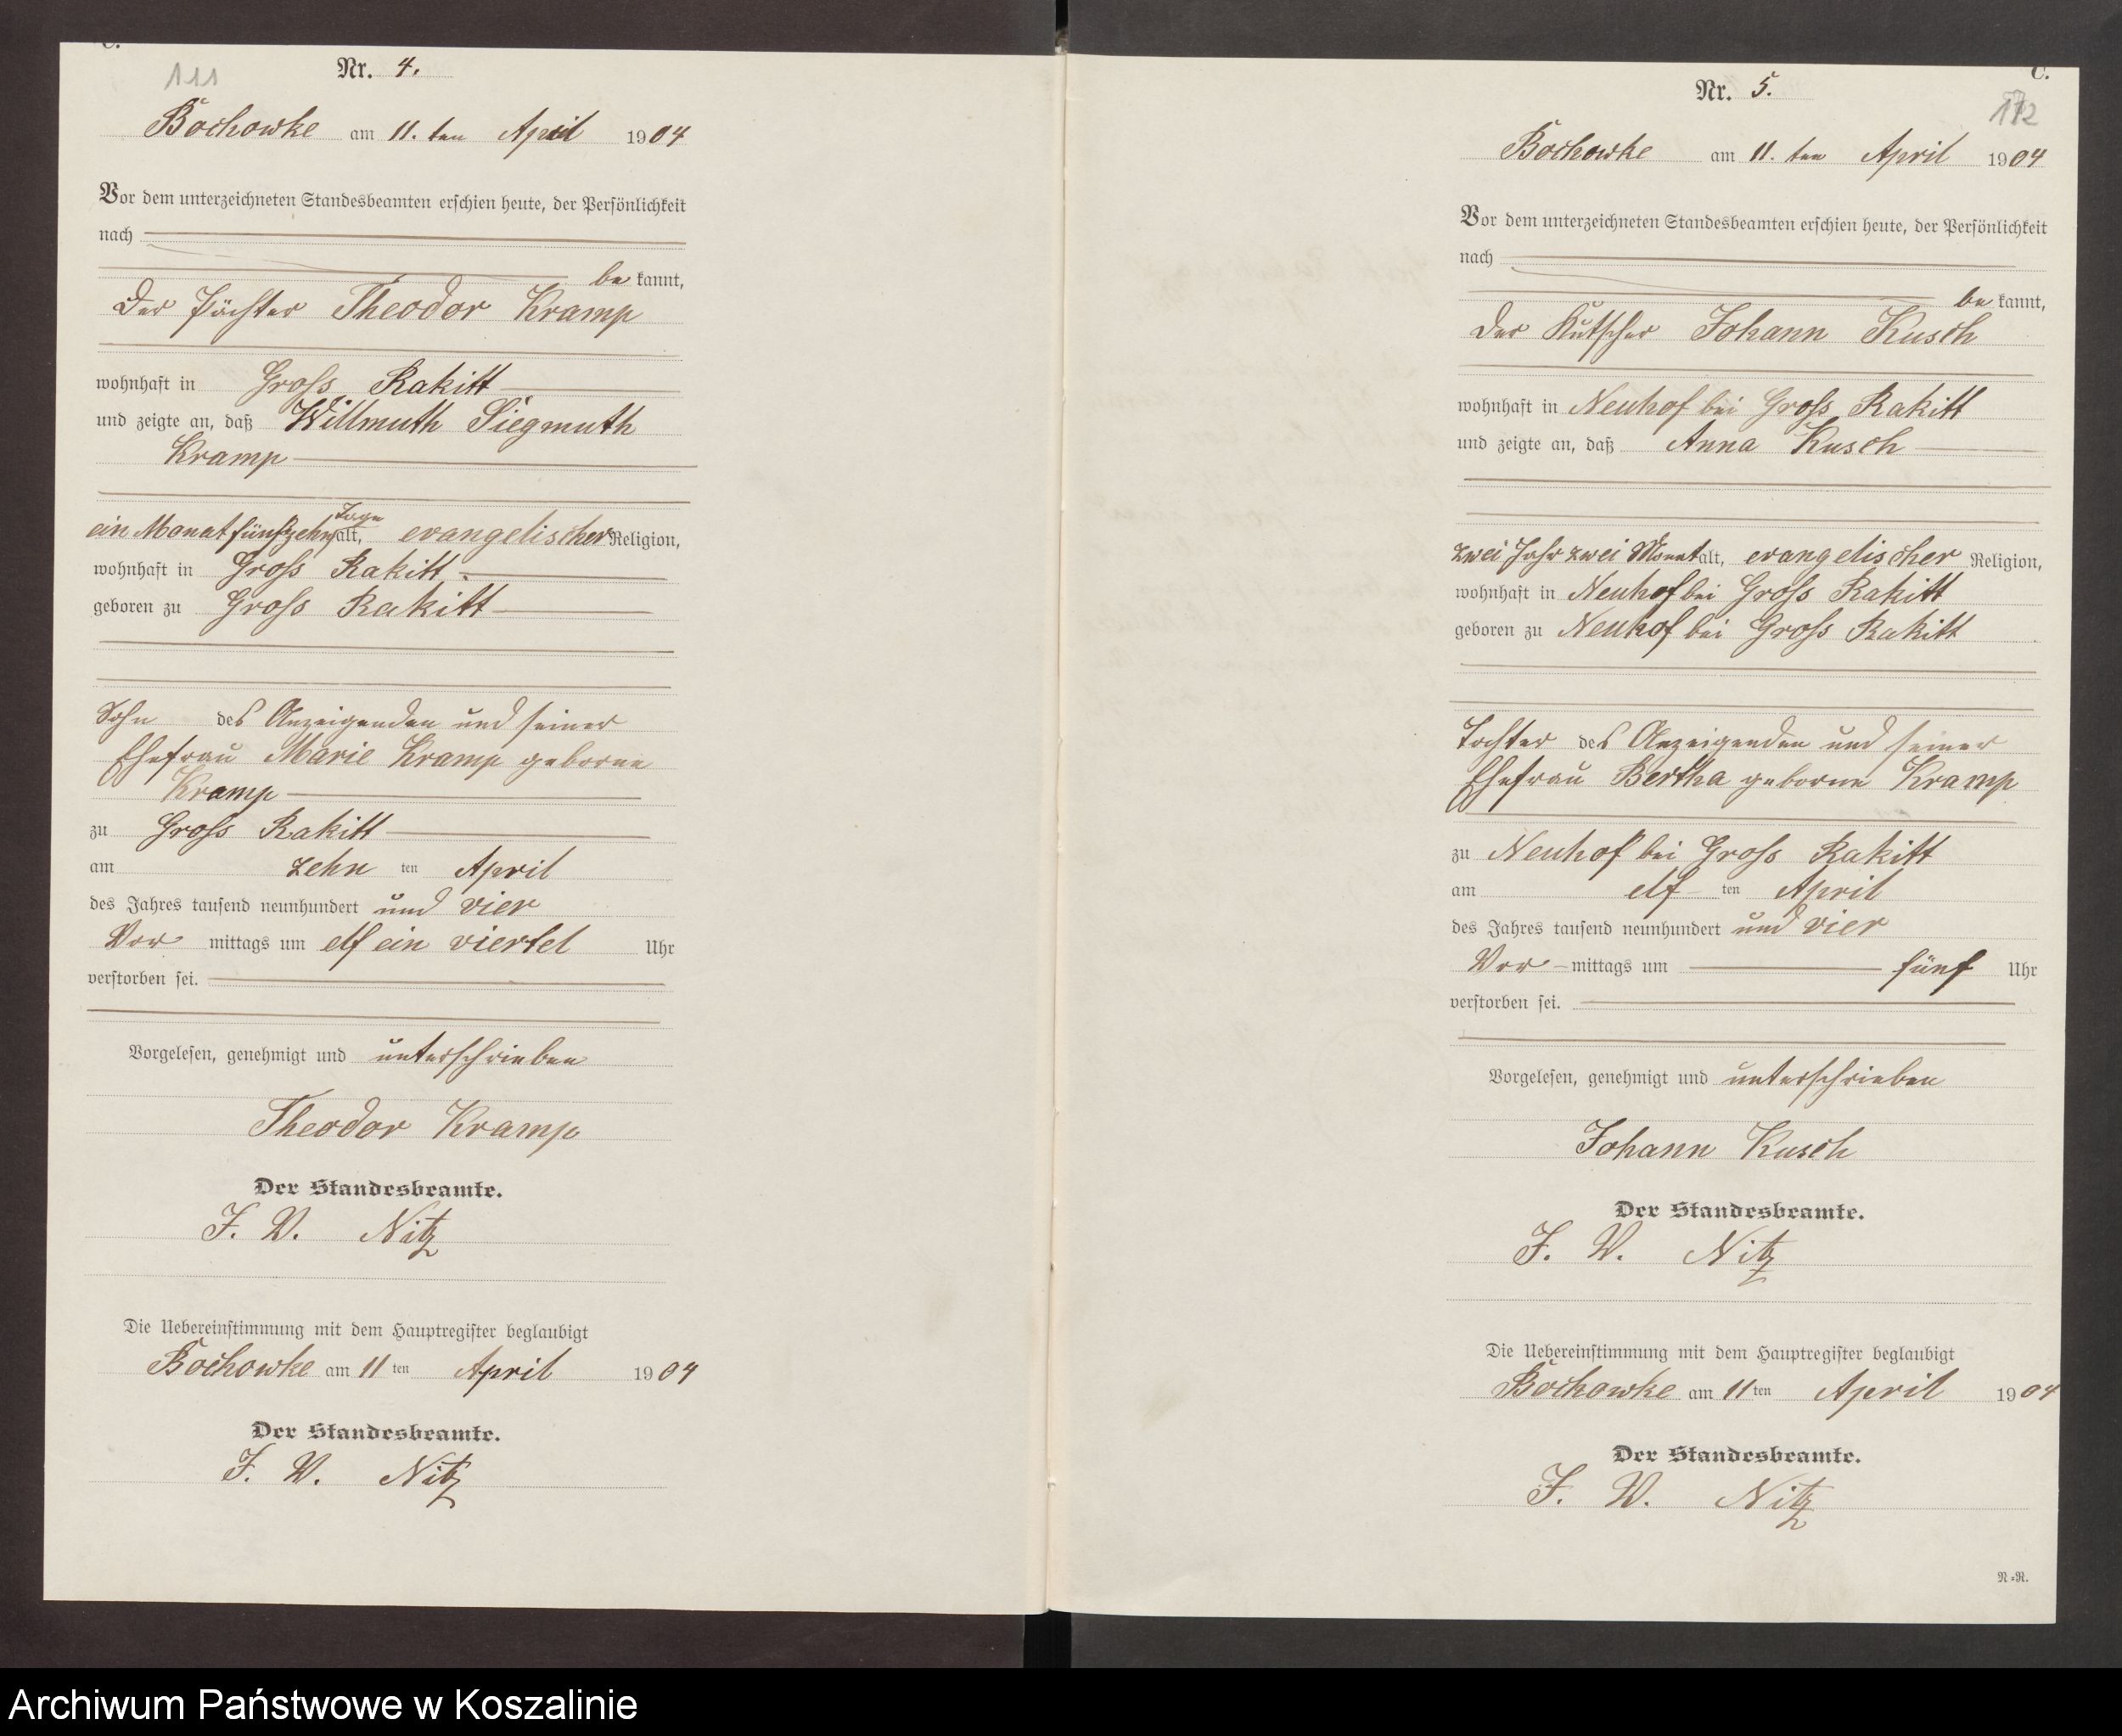 C.
111
Nr. 4.
Bochowke am 11. ten April 1904
Vor dem unterzeichneten Standesbeamten erschien heute, der Persönlichkeit
nach
be kannt,
der Pächter Theodor Kramp
wohnhaft in Gross Rakitt
und zeigte an, daß Willmuth Siegmuth
Kramp
ein Monat fünfzehn Tage alt, evangelischer Religion,
wohnhaft in Gross Rakitt
geboren zu Gross Rakitt
Sohn des Anzeigenden und seiner
Ehefrau Marie Kramp geborne
Kramp
zu Gross Rakitt
am zehn ten April
des Jahres tausend neunhundert und vier
Vor mittags um elf ein viertel Uhr
verstorben sei.
Vorgelesen, genehmigt und unterschrieben
Theodor Kramp
Der Standesbeamte.
J. V. Nitz
Die Uebereinstimmung mit dem Hauptregister beglaubigt
Bochowke am 11 ten April 1904
Der Standesbeamte.
J. V. Nitz
C.
Nr. 5.
Bochowke am 11. ten April 1904
Vor dem unterzeichneten Standesbeamten erschien heute, der Persönlichkeit
nach
be kannt,
der Kutscher Johann Kusch
wohnhaft in Neuhof bei Gross Rakitt
und zeigte an, daß Anna Kusch
zwei Jahr zwei Monat alt, evangelischer Religion,
wohnhaft in Neuhof bei Gross Rakitt
geboren zu Neuhof bei Gross Rakitt
Tochter des Anzeigenden und seiner
Ehefrau Bertha geborne Kramp
zu Neuhof bei Gross Rakitt
am elf ten April
des Jahres tausend neunhundert und vier
Vor mittags um fünf Uhr
verstorben sei.
Vorgelesen, genehmigt und unterschrieben
Johann Kusch
Der Standesbeamte.
J. V. Nitz
Die Uebereinstimmung mit dem Hauptregister beglaubigt
Bochowke am 11 ten April 1904
Der Standesbeamte.
J. V. Nitz
N=R.
Archiwum Państwowe w Koszalinie